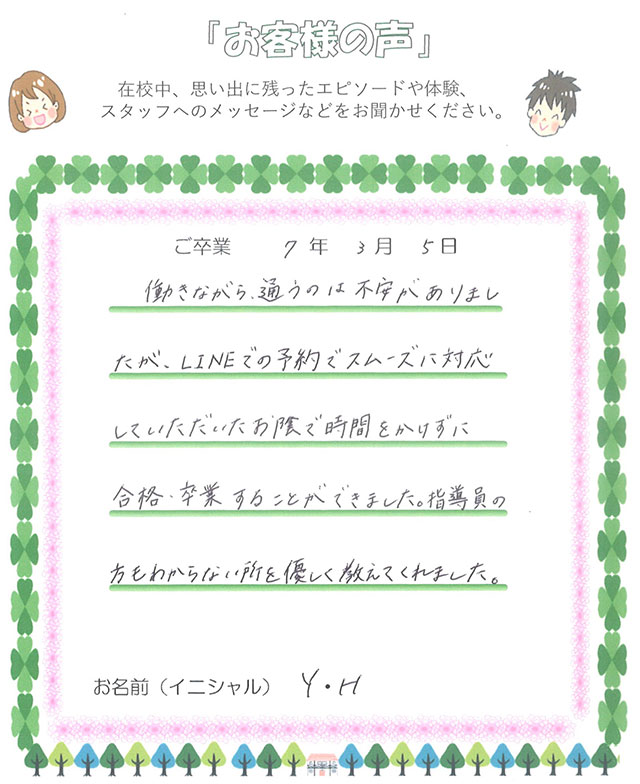 「お客様の声」
在校中、思い出に残ったエピソードや体験、
スタッフへのメッセージなどをお聞かせください。
ご卒業 7年 3月 5日
働きながら、通うのは不安がありまし
たが、LINEでの予約でスムーズに対応
していただいたお陰で時間をかけずに
合格・卒業することができました。指導員の
方もわからない所を優しく教えてくれました。
お名前（イニシャル） Y・H